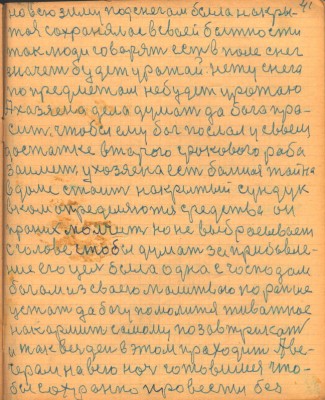 41
но всю зиму под снегам была накры-
тая сохранялас в своей бытности
так люди говорят есть в поле снег
значет будет урожай нету снега
по предметам небудет урожаю
Ахазяена дела думат да бога про-
сит чтобы ему бог послал у своем
достатке второго срокового раба
займет ухозяена ест балшая тайна
вдоме стаит накрытый сундук
вком определяютя средства он
проних молчит но не выбрасывает
сголове чтобы думат за прибавле-
ние его цел была одна с господом
богам из своею молитваю поранше
устат да богу помолится животное
накармит самому позавтрикат
и так вес ден в этом праходит Аве-
черам навсю ноч готовился что-
бы сохранно провести без